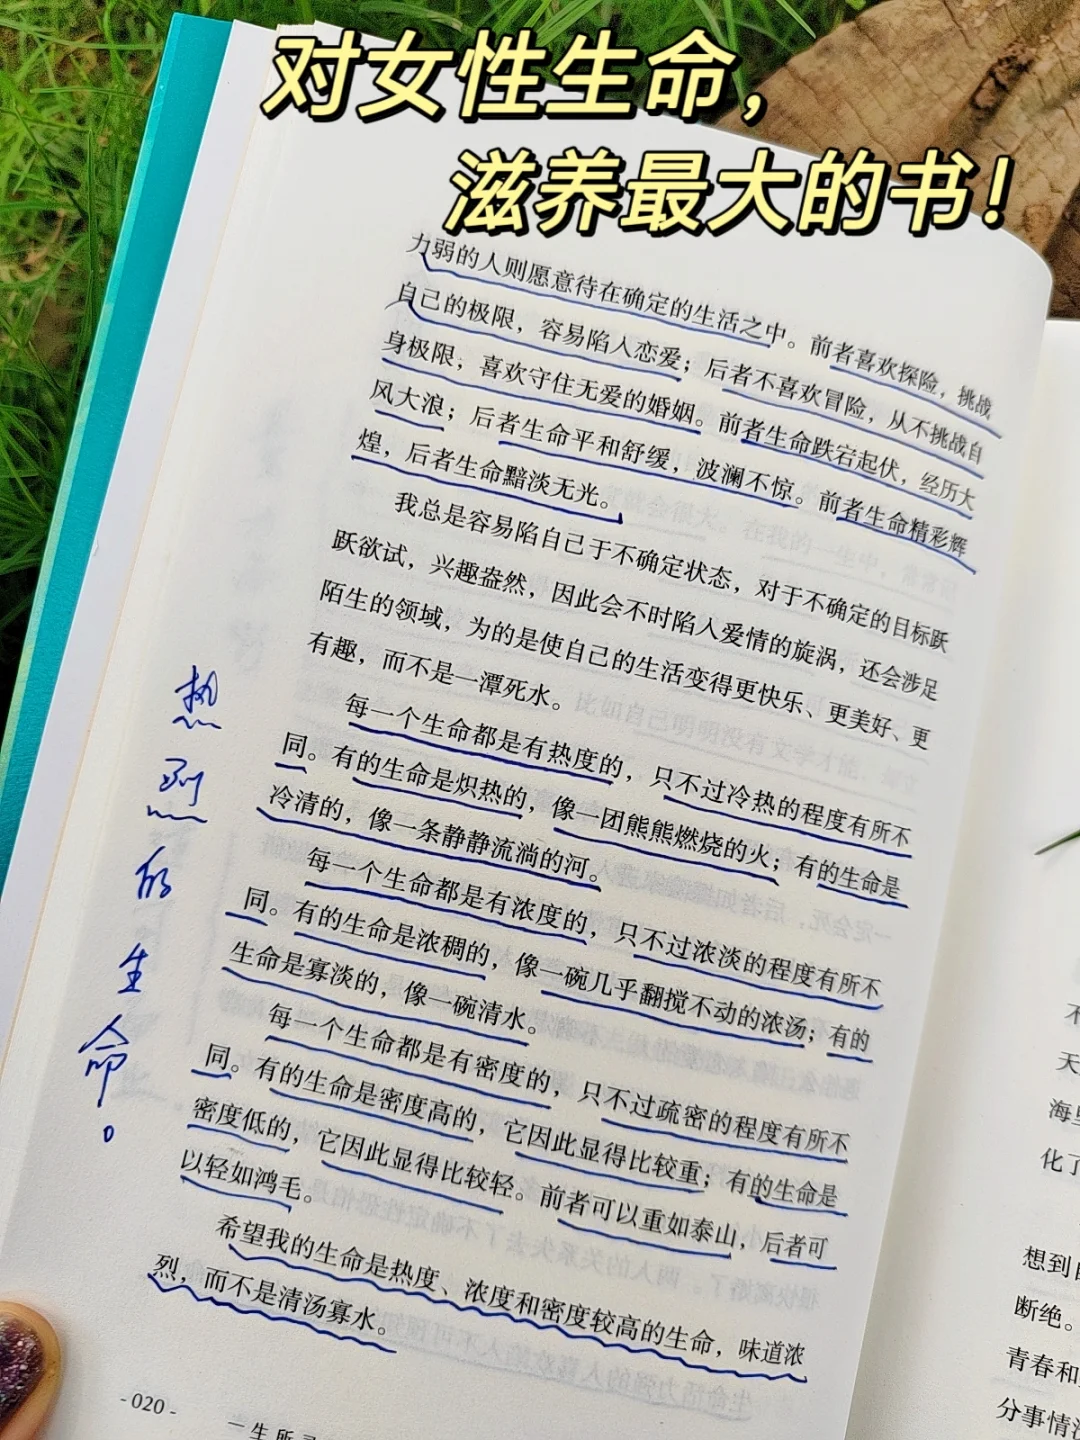 对女性生命，
滋养最大的书！
力弱的人则愿意待在确定的生活之中。前者喜欢探险，挑战
自己的极限，容易陷入恋爱；后者不喜欢冒险，从不挑战自
身极限，喜欢守住无爱的婚姻。前者生命跌宕起伏，经历大
风大浪；后者生命平和舒缓，波澜不惊。前者生命精彩辉
煌，后者生命黯淡无光。
我总是容易陷自己于不确定状态，对于不确定的目标跃
跃欲试，兴趣盎然，因此会不时陷入爱情的旋涡，还会涉足
陌生的领域，为的是使自己的生活变得更快乐、更美好、更
有趣，而不是一潭死水。
每一个生命都是有热度的，只不过冷热的程度有所不
同。有的生命是炽热的，像一团熊熊燃烧的火；有的生命是
冷清的，像一条静静流淌的河。
每一个生命都是有浓度的，只不过浓淡的程度有所不
同。有的生命是浓稠的，像一碗几乎翻搅不动的浓汤；有的
生命是寡淡的，像一碗清水。
每一个生命都是有密度的，只不过疏密的程度有所不
同。有的生命是密度高的，它因此显得比较重；有的生命是
密度低的，它因此显得比较轻。前者可以重如泰山，后者可
以轻如鸿毛。
希望我的生命是热度、浓度和密度较高的生命，味道浓
烈，而不是清汤寡水。
热烈的生命。
-020-
一生所
不
天
海
化了
想到
断绝。
青春和
分事情